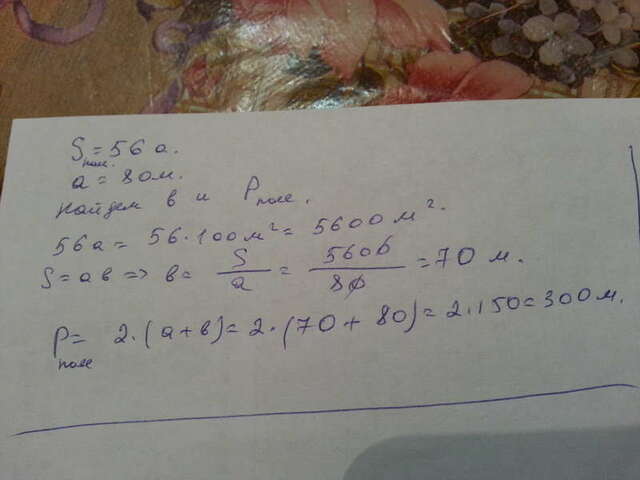 S поле. = 56 а.
a = 80 м.
Найдем в и P поле.
56 а = 56 · 100 м² = 5600 м².
S = aв => в = S/a = 5600/80 = 70 м.
P поле = 2 · (a + в) = 2 · (70 + 80) = 2 · 150 = 300 м.